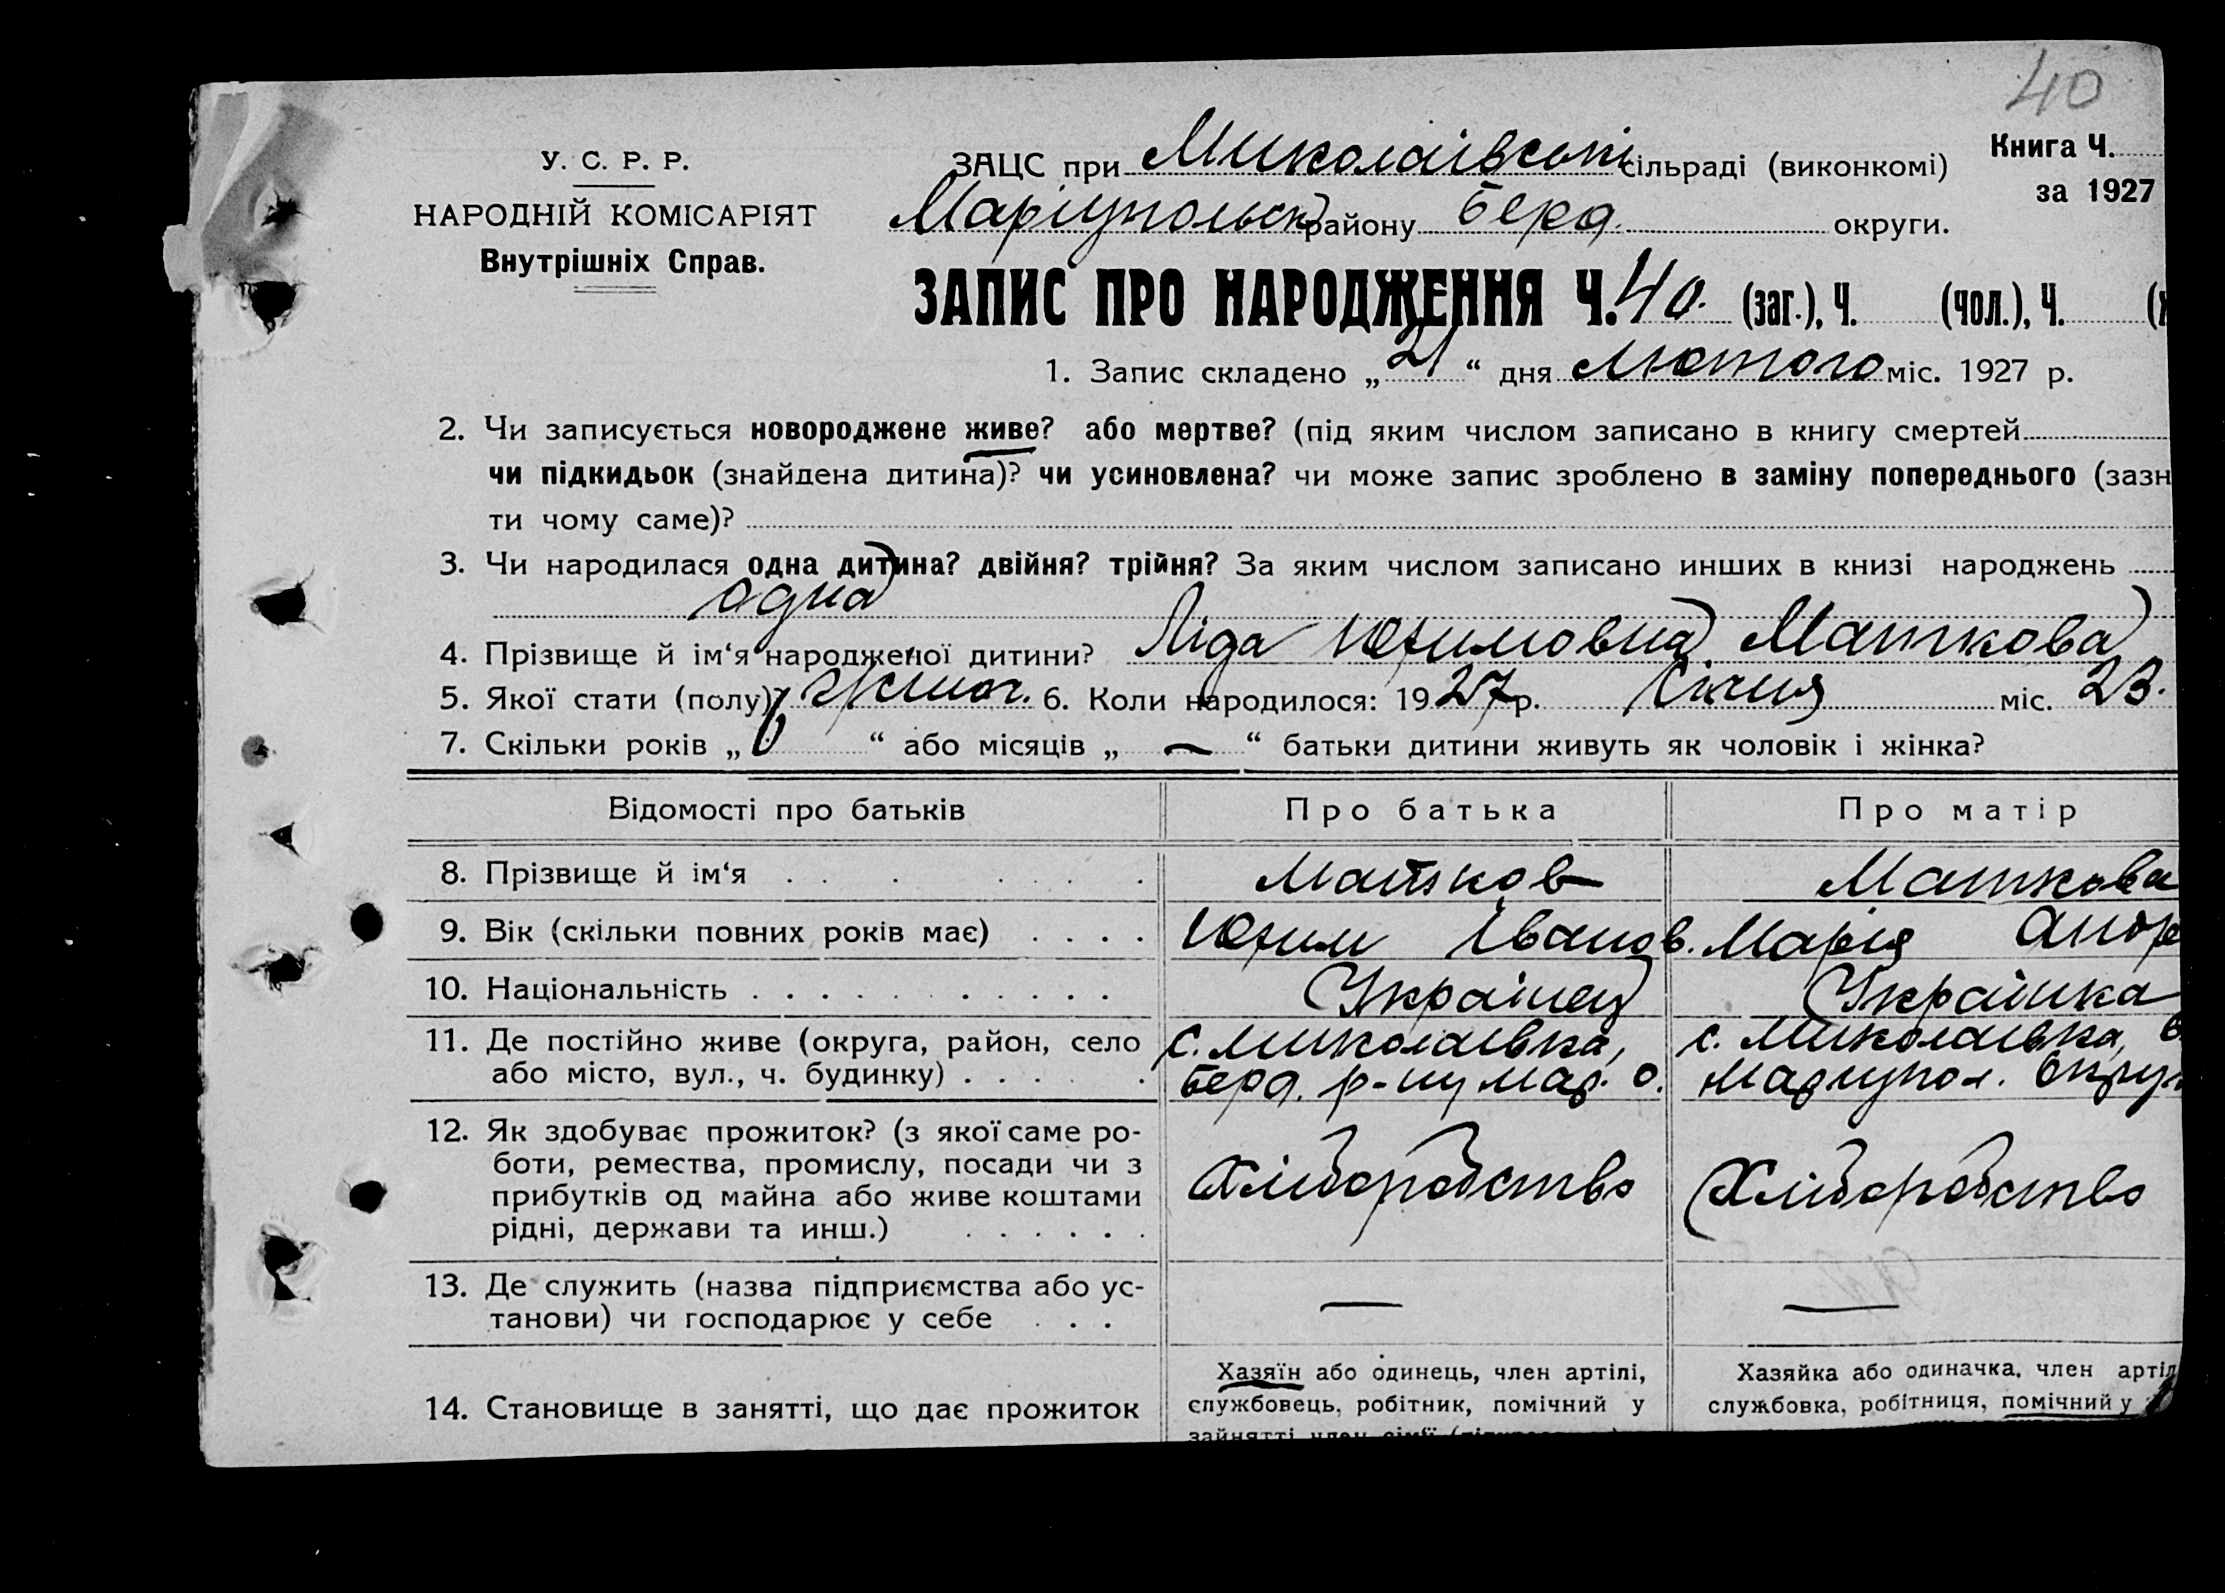 40
У. С. Р. Р.
НАРОДНІЙ КОМІСАРІЯТ
Внутрішніх Справ.
ЗАЦС при Миколаївські сільраді (виконкомі)
Книга Ч.
за 1927
Маріупольськ району Берд. округи.
ЗАПИС ПРО НАРОДЖЕННЯ Ч. 40. (заг.), Ч. (чол.), Ч.
1. Запис складено „ 21 “ дня Лютого міс. 1927 р.
2. Чи записується новороджене живе? або мертве? (під яким числом записано в книгу смертей
чи підкидьок (знайдена дитина)? чи усиновлена? чи може запис зроблено в заміну попереднього (зазн
ти чому саме)?
3. Чи народилася одна дитина? двійня? трійня? За яким числом записано инших в книзі народжень
одна
4. Прізвище й ім‘я народженої дитини? Ліда Юхимовна Маткова
5. Якої стати (полу)? жіноч. 6. Коли народилося: 1927 р. Січня міс. 23.
7. Скільки років „ 6 “ або місяців „ — “ батьки дитини живуть як чоловік і жінка?
Відомості про батьків Про батька Про матір
8. Прізвище й ім‘я Матков Маткова
9. Вік (скільки повних років має) Юхим Іванов. Марія Андре
10. Національність Українец Українка
11. Де постійно живе (округа, район, село с. Миколаївка, с. Миколаївка,
або місто, вул., ч. будинку) Берд. р-ну Мар. о. Маріупол. Окру
12. Як здобуває прожиток? (з якої саме ро-
боти, ремества, промислу, посади чи з Хліборобство Хліборобство
прибутків од майна або живе коштами
рідні, держави та инш.)
13. Де служить (назва підприємства або ус- — —
танови) чи господарює у себе
Хазяїн або одинець, член артілі, Хазяйка або одиначка, член артіл
14. Становище в занятті, що дає прожиток службовець, робітник, помічний у службовка, робітниця, помічний у